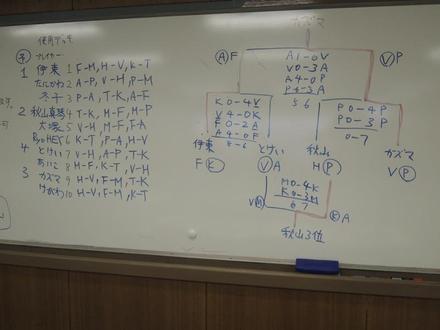 使用デッキ
プレイヤー
1 伊東 1 F-M, H-V, K-T
たにかわ 2 A-P, V-H, P-M
3 P-A, T-K, A-F
2 秋山真琴 4 T-K, M-F, H-P
大塚 5 V-H, M-F, F-A
6 K-T, P-A, H-V
4 とけい 7 V-H, A-P, T-K
あいこ 8 M-F, K-T, V-H
3 カズマ 9 H-V, F-M, T-K
けがわ 10 H-V, F-M, K-T
カズマ
A F
V P
A1-0V
V0-3A
A4-0P
P4-3A
5 6
K0-4V
V4-0K
F0-2A
A4-0F
8-6
P0-4P
P0-3P
0-7
伊東
とけい
秋山
カズマ
F K
V A
H P
V P
M0-4K
K0-3M
0 7
V M
K A
秋山3位